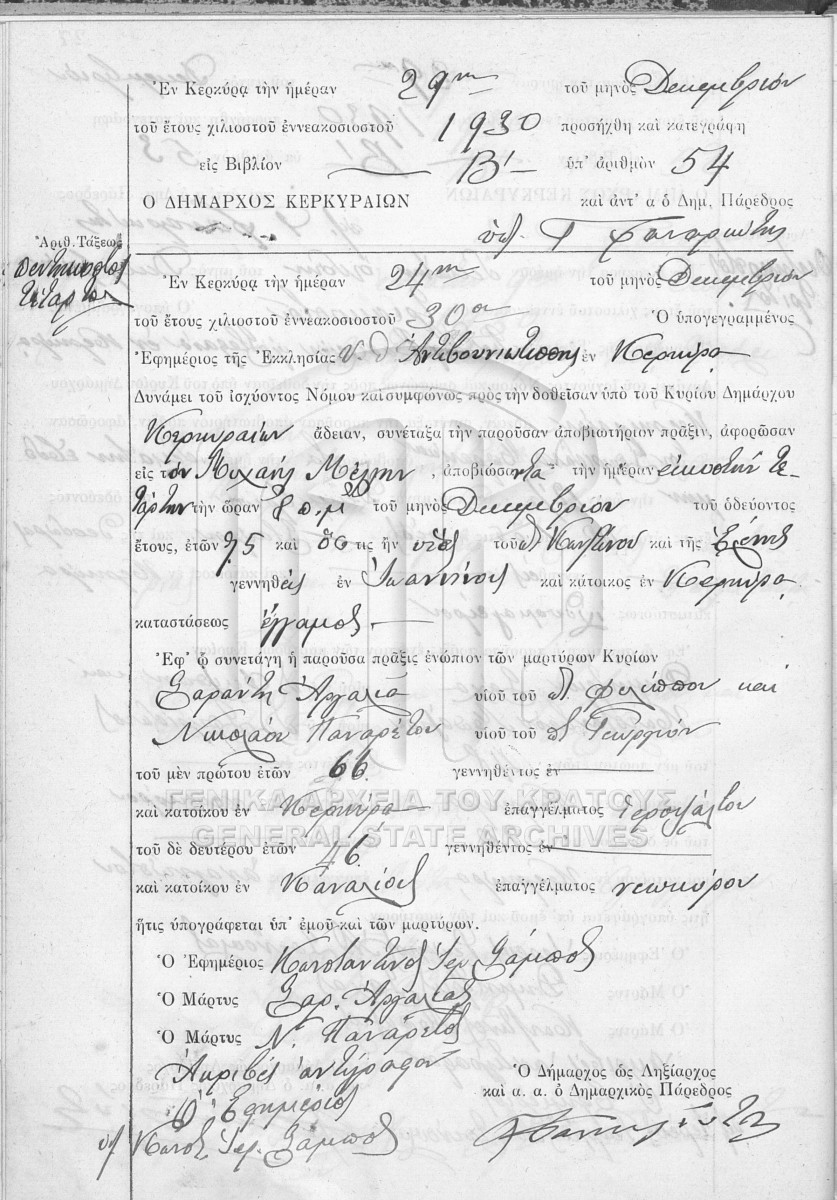 Ἐν Κερκύρᾳ τὴν ἡμέραν 29ην τοῦ μηνὸς Δεκεμβρίου
τοῦ ἔτους χιλιοστοῦ ἐννεακοσιοστοῦ 1930 προσήχθη καὶ κατεγράφη
εἰς Βιβλίον Β′ ὑπ᾽ ἀριθμὸν 54
Ο ΔΗΜΑΡΧΟΣ ΚΕΡΚΥΡΑΙΩΝ καὶ ἀντ᾽ α ὁ Δημ, Πάρεδρος
Ἀριθ. Τάξεως
Πεντηκοστὸς
τέταρτος
Ἐν Κερκύρᾳ τὴν ἡμέραν 24ην τοῦ μηνὸς Δεκεμβρίου
τοῦ ἔτους χιλιοστοῦ ἐννεακοσιοστοῦ 30ου Ὁ ὑπογεγραμμένος
Ἐφημέριος τῆς Ἐκκλησίας Υ. Θ. Ἀντιβουνιωτίσσης ἐν Κερκύρᾳ
Δυνάμει τοῦ ἰσχύοντος Νόμου καὶ συμφώνως πρὸς τὴν δοθεῖσαν ὑπὸ τοῦ Κυρίου Δημάρχου
Κερκυραίων ἄδειαν, συνέταξα τὴν παροῦσαν ἀποβιωτήριον πρᾶξιν, ἀφορῶσαν
εἰς τὸν Μιχαὴλ Μέλλην, ἀποβιώσαντα τὴν ἡμέραν εἰκοστὴν τε-
τάρτην τὴν ὥραν 8 π.μ. τοῦ μηνὸς Δεκεμβρίου τοῦ ὁδεύοντος
ἔτους, ἐτῶν 75 καὶ ὅστις ἦν υἱὸς τοῦ Κωνστ/νου καὶ τῆς Εἰρήνης
γεννηθεὶς ἐν Ἰωαννίνοις καὶ κάτοικος ἐν Κερκύρᾳ
καταστάσεως ἔγγαμος
Ἐφ᾽ ᾧ συνετάγη ἡ παροῦσα πρᾶξις ἐνώπιον τῶν μαρτύρων Κυρίων
Σαράντη Ἀργαλιᾶ υἱοῦ τοῦ Φιλίππου καὶ
Νικολάου Παναρέτου υἱοῦ τοῦ Γεωργίου
τοῦ μὲν πρώτου ἐτῶν 66 γεννηθέντος ἐν
ΓΕΝΙΚΑ ΑΡΧΕΙΑ ΤΟΥ ΚΡΑΤΟΥΣ
καὶ κατοίκου ἐν Κερκύρᾳ ἐπαγγέλματος ἱεροψάλτου
GENERAL STATE ARCHIVES
τοῦ δὲ δευτέρου ἐτῶν 46 γεννηθέντος ἐν
καὶ κατοίκου ἐν Καναλίοις ἐπαγγέλματος νεωκόρου
ἥτις ὑπογράφεται ὑπ᾽ ἐμοῦ καὶ τῶν μαρτύρων.
Ὁ Ἐφημέριος Κωνσταντῖνος Ἱερ. Σάμπος
Ὁ Μάρτυς Σαρ. Ἀργαλιᾶς
Ὁ Μάρτυς Ν. Πανάρετος
Ἀκριβὲς ἀντίγραφον
Ὁ Ἐφημέριος
Κωνστ. Ἱερ. Σάμπος
Ὁ Δήμαρχος ὡς Ληξίαρχος
καὶ α. α. ὁ Δημαρχικὸς Πάρεδρος